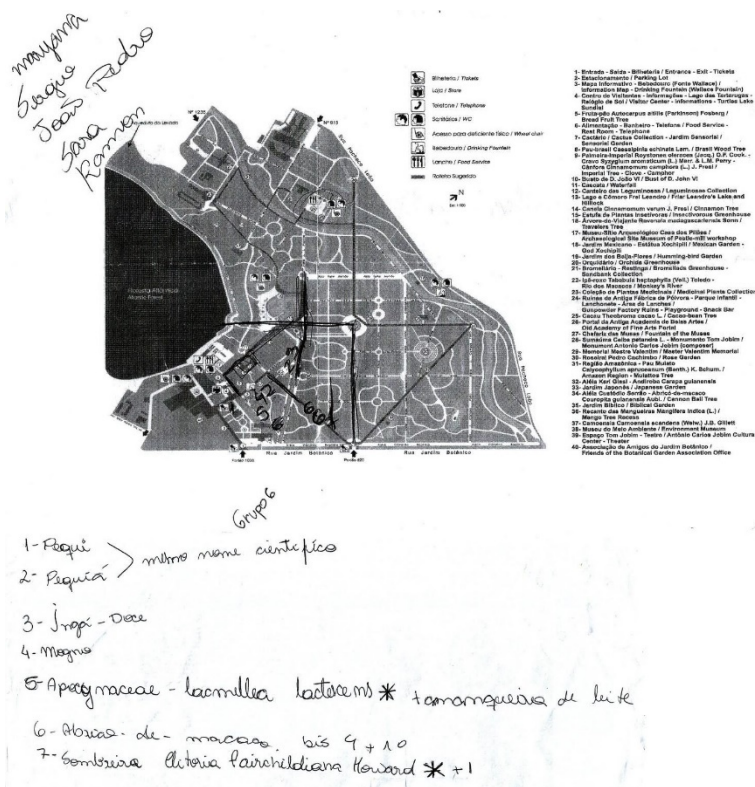 Sergio
João Pedro
Sara
Ramon
Nº 1235
Nº 915
Bilheteria / Tickets
Loja / Store
Telefone / Telephone
Sanitários / WC
Acesso para deficiente físico / Wheel chair
Bebedouro / Drinking Fountain
Lanche / Food Service
Roteiro Sugerido
N
Rua Pacheco Leão
Floresta Atlântica
Atlantic Forest
Rua Major Rubens Vaz
Rua Jardim Botânico
Rua Jardim Botânico
1- Entrada - Saída - Bilheteria / Entrance - Exit - Tickets
2- Estacionamento / Parking Lot
3- Mapa Informativo - Bebedouro (Fonte Wallace) /
Information Map - Drinking Fountain (Wallace Fountain)
4- Centro de Visitantes - Informações - Lago das Tartarugas -
Relógio de Sol / Visitor Center - Informations - Turtles Lake
Sundial
5- Fruta-pão Autocarpus altilis (Parkinson) Fosberg /
Bread Fruit Tree
6- Alimentação - Banheiro - Telefone / Food Service -
Rest Room - Telephone
7- Cactário / Cactus Collection - Jardim Sensorial /
Sensorial Garden
8- Pau-brasil Caesalpinia echinata Lam. / Brazil Wood Tree
9- Palmeira-Imperial Roystonea oleracea (Jacq.) O.F. Cook -
Cravo Syzygium aromaticum (L.) Merr. & L.M. Perry -
Cânfora Cinnamomum camphora (L.) J. Presl /
Imperial Tree - Clove - Camphor
10- Busto de D. João VI / Bust of D. John VI
11- Cascata / Waterfall
12- Canteiro das Leguminosas / Leguminosae Collection
13- Lago e Cômoro Frei Leandro / Friar Leandro's Lake and
Hillock
14- Canela Cinnamomum verum J. Presl / Cinnamon Tree
15- Estufa de Plantas Insetívoras / Insectivorous Greenhouse
16- Árvore-do-Viajante Ravenala madagascariensis Sonn /
Travelers Tree
17- Museu-Sítio Arqueológico Casa dos Pilões /
Archaeological Site Museum of Pestle-mill workshop
18- Jardim Mexicano - Estátua Xochipilli / Mexican Garden -
God Xochipilli
19- Jardim dos Beija-Flores / Humming-bird Garden
20- Orquidário / Orchids Greenhouse
21- Bromeliário - Restinga / Bromeliads Greenhouse -
Sandbank Collection
22- Ipê-roxo Tabebuia heptaphylla (Vell.) Toledo -
Rio dos Macacos / Monkey's River
23- Coleção de Plantas Medicinais / Medicinal Plants Collection
24- Ruínas da Antiga Fábrica de Pólvora - Parque Infantil -
Lanchonete - Área de Lanches /
Gunpowder Factory Ruins - Playground - Snack Bar
25- Cacau Theobroma cacao L. / Cacao-bean Tree
26- Portal da Antiga Academia de Belas Artes /
Old Academy of Fine Arts Portal
27- Chafariz das Musas / Fountain of the Muses
28- Sumaúma Ceiba petandra L. - Monumento Tom Jobim /
Monument Antonio Carlos Jobim (composer)
29- Memorial Mestre Valentim / Master Valentim Memorial
30- Roseiral Pedro Cachimbo / Rose Garden
31- Região Amazônica - Pau Mulato
Calycophyllum spruceanum (Benth.) K. Schum. /
Amazon Region - Mulattos Tree
32- Aléia Karl Glasl - Andiroba Carapa guianensis
33- Jardim Japonês / Japanese Garden
34- Aléia Custódio Serrão - Abricó-de-macaco
Couroupita guianensis Aubl. / Cannon Ball Tree
35- Jardim Bíblico / Biblical Garden
36- Recanto das Mangueiras Mangifera Indica (L.) /
Mango Tree Recess
37- Camoensia Camoensia scandens (Welw.) J.B. Gillett
38- Museu do Meio Ambiente / Environment Museum
39- Espaço Tom Jobim - Teatro / Antônio Carlos Jobim Cultural
Center - Theater
40- Associação de Amigos do Jardim Botânico /
Friends of the Botanical Garden Association Office
Grupo 6
1- Pequi
2- Pequiá
mesmo nome científico
3- Ingá - Doce
4- Mogno
5- Apocynaceae - lacmellea lactescens * tamanqueira de leite
6- Abrico - de - macaco. bis 9 + 10
7- Sombreiro Clitoria Fairchildiana Howard * +1